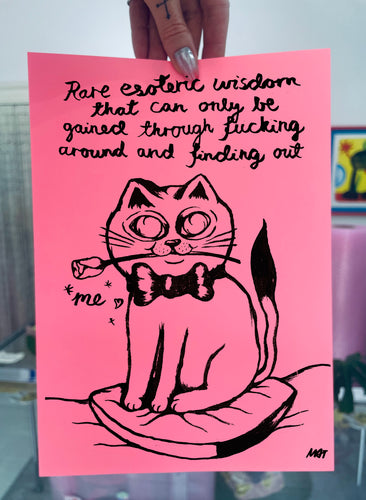 Rare esoteric wisdom
that can only be
gained through fucking
around and finding out
*me
MAT